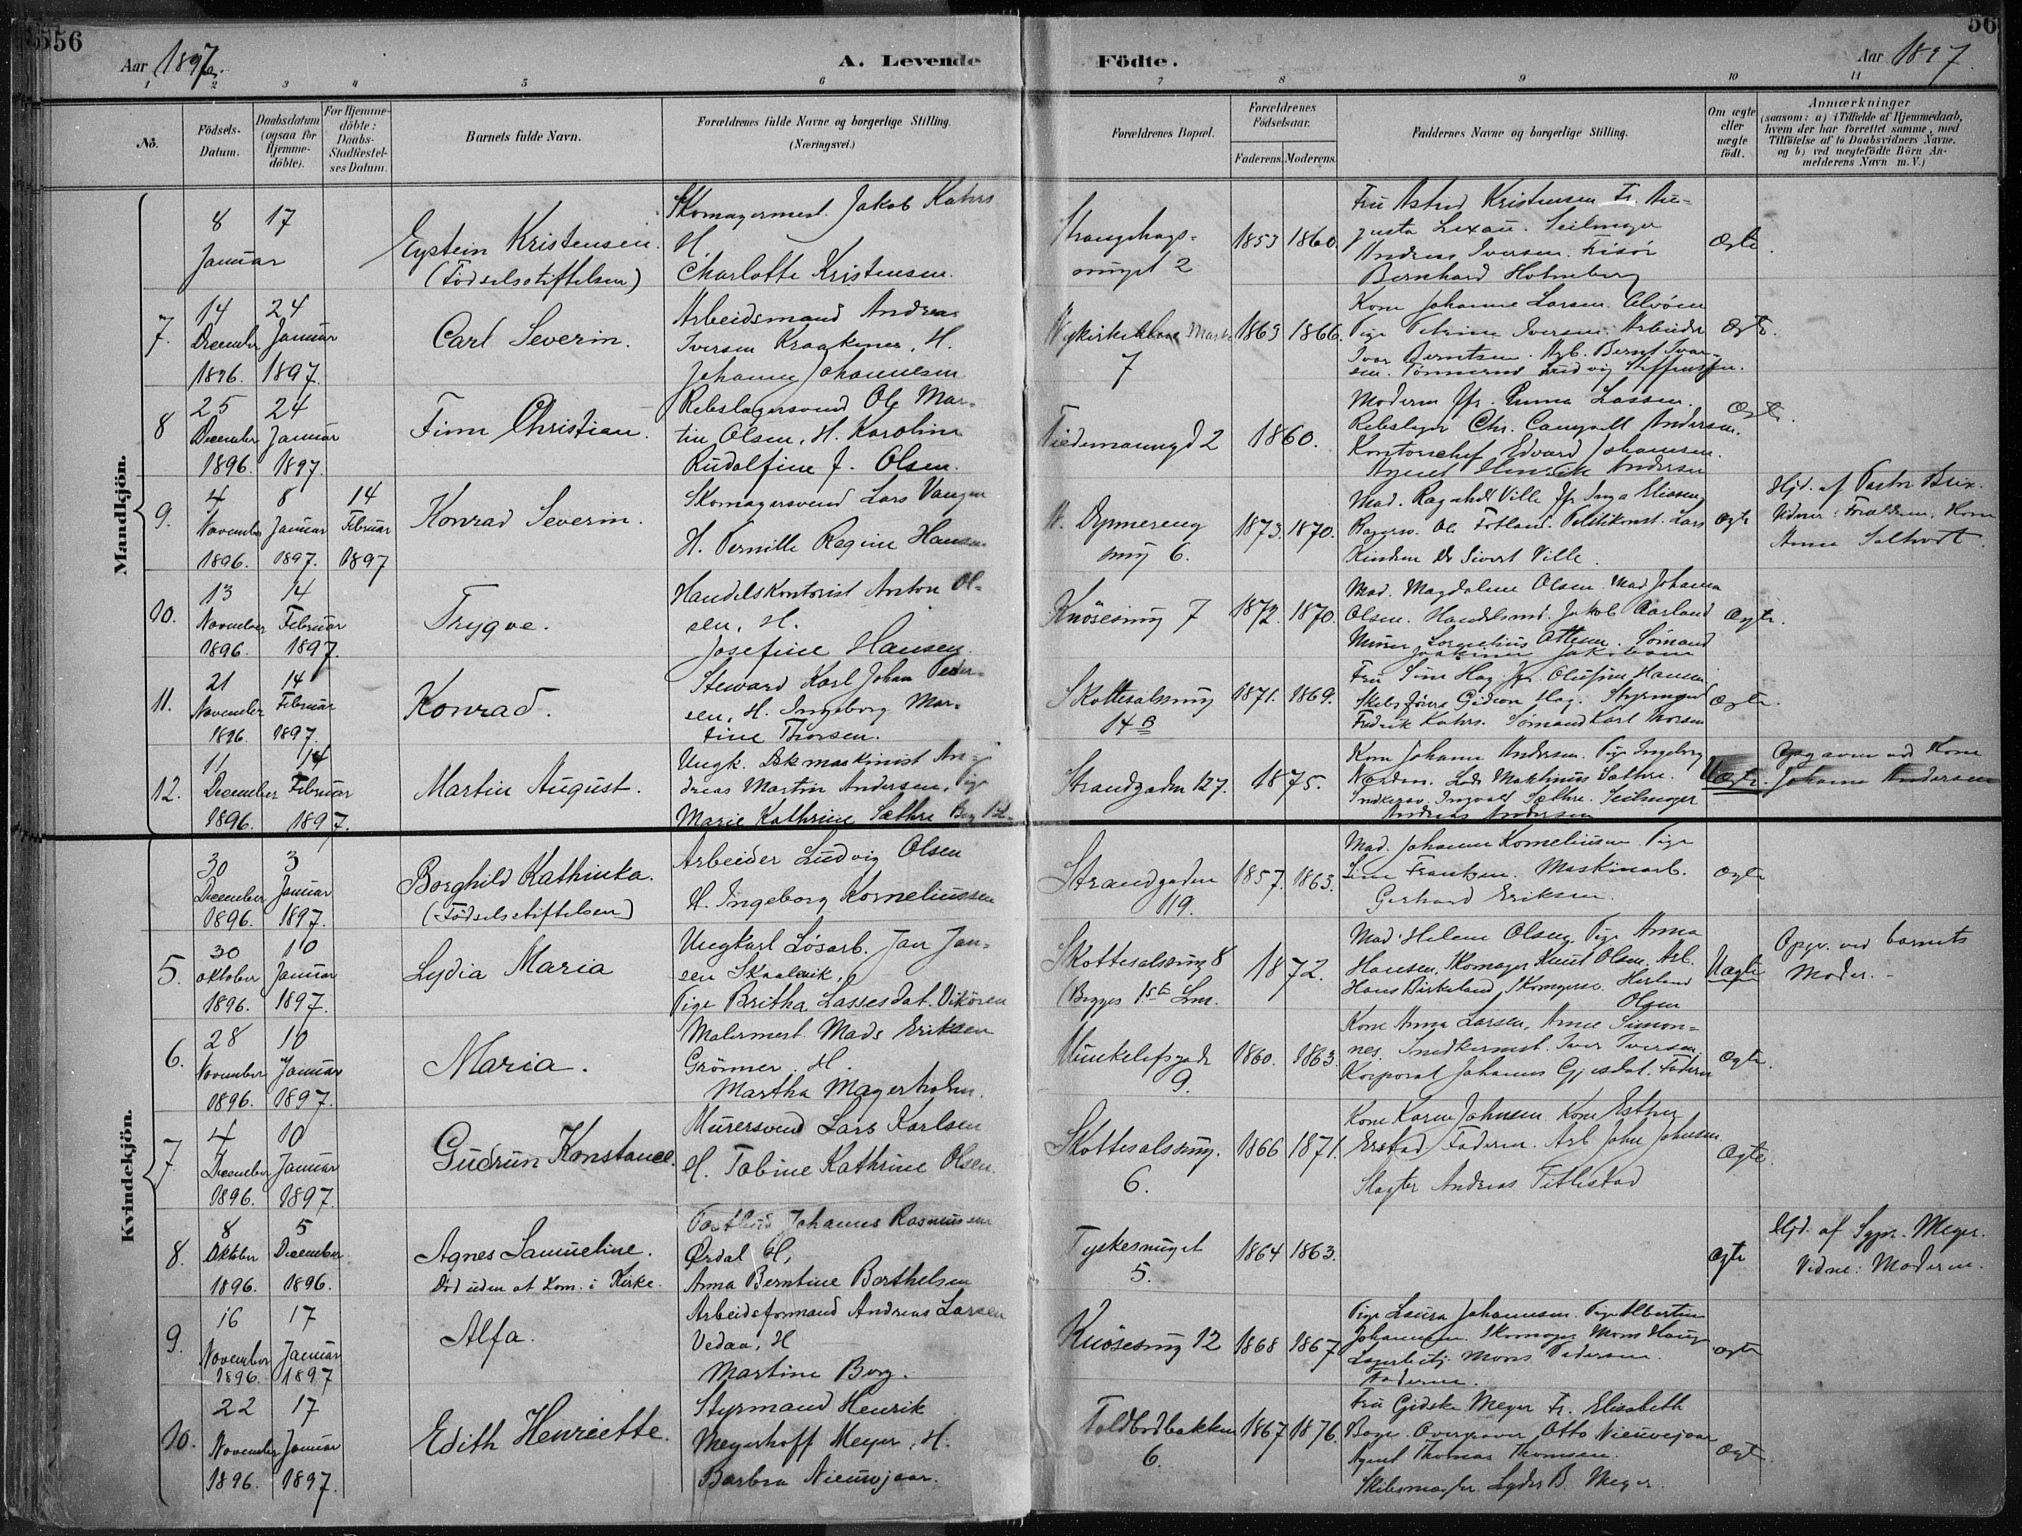 556
56
Aar 1897.
A. Levende
Födte.
Aar 1897.
1 2 3 4 5 6 7 8 9 10 11
No.
Födsels-
Datum.
Daabsdatum
(ogsaa for
Hjemme-
döbte).
For Hjemme-
döbte:
Daabs-
Stadfæstel-
ses Datum.
Barnets fulde Navn.
Forældrenes fulde Navne og borgerlige Stilling.
(Næringsvei.)
Forældrenes Bopæl.
Forældrenes
Födselsaar.
Faderens. Moderens.
Faddernes Navne og borgerlige Stilling.
Om ægte
eller
uægte
födt.
Anmærkninger
(saasom: a) i Tilfælde af Hjemmedaab,
hvem der har forrettet samme, med
Tilföielse af to Daabsvidners Navne.
og b) ved uægtefödte Börn An-
melderens Navn m. V.)
Mandkjön.
8 17
Januar
Eystein Kristensen.
(Födselsstiftelsen)
Skomagermest. Jakob Kahrs
H.
Charlotte Kristensen.
muget 2
1853 1860.
Fru Astrid Kristensen Fr. Au-
gusta Lexau. Seilmager
Andreas Iversen. Frisör
Bernhard Holmberg
Ægte.
7.
14 24
December Januar
1896. 1897.
Carl Severin.
Arbeidsmand Andreas
Iversen Kraakenes, H.
Johanne Johannesen
7
1863 1866.
Kone Johanne Larsen.
Pige Petrine Iversen. Arbeider
Ivar Berntsen. Arb. Bernt Ivar-
sen.
Ægte.
8
25 24
December Januar
1896. 1897.
Finn Christian.
Rebslagersvend Ole Mar-
tin Olsen, H. Karoline
Rudolfine J. Olsen.
Tiedemannsgd 2
1860.
Moderen Jfr. Emma Lassen.
Rebslager Chr. Andersen.
Kontorchef Edvard Johannesen.
Agent Henrik Andersen
Ægte.
9.
4 8 14
November Januar Februar
1896. 1897. 1897
Konrad Severin.
Skomagersvend Lars Vangen
H. Pernille Regine Hansen
smug 6.
1873. 1870.
Mad. Ragnhild Ville Jfr. Inga Eliassen
Ole Fotland. Lars
Sivert Ville.
Ægte
Hjd. af Pastor Brix.
Vidner: Forældrene. Kone
Anna
10.
13 14
November Februar
1896. 1897.
Trygve.
Handelskontorist Anton Ol-
sen, H.
Josefine Hansen.
Knösesmug 7
1872. 1870.
Mad. Magdalene Olsen Mad Johanna
Olsen. Handelsmd. Jakob Aarland
Murer Kornelius Ottesen. Sömand
Ægte.
11.
21 14
November Februar
1896. 1897.
Konrad.
Steward Karl Johan Peder-
sen, H. Ingeborg Mar-
tine Thorsen.
Skottesalsmug
14 B
1871. 1869.
Fru Sine Hag Jfr. Olufine Hansen
Skibsförer Gideon Hag. Styrmand
Fredrik Kahrs. Sömand Karl Thorsen
Ægte.
12.
11 14
December Februar
1896. 1897.
Martin August.
Ungk. Dkmaskinist An-
dreas Martin Andersen, Pige
Marie Kathrine Sæthre
Strandgaden 127.
1875.
Kone Johanne Andersen. Pige Ingeborg
Martinius Sæthre.
Ingvald Sæthre. Seilmager
Andreas Andersen
Uægte.
Opgaven ved Kone
Johanne Andersen
Kvindekjön.
30 3
December Januar
1896. 1897.
Borghild Kathinka.
(Födselsstiftelsen)
Arbeider Ludvig Olsen
H. Ingeborg Korneliussen
Strandgaden
119.
1857. 1863.
Mad. Johanne Korneliussen Pige
Line Frantzen. Maskinarb.
Gerhard Eriksen.
Ægte
5.
30 10
Oktober Januar
1896. 1897.
Lydia Maria
Ungkarl Lösarb. Jan Jan-
sen Skaalevik,
Pige Britha Lassesdat. Vikören
Skottesalsmug 8
(Begges 1ste Lm.
1872.
Mad. Helene Olsen, Pige Anna
Hansen, Skomager Knut Olsen, Arb.
Hans Birkeland, Skomgersv. Herland
Olsen
Uægte
Opgv. ved barnets
Moder.
6.
28 10
November Januar
1896. 1897.
Maria.
Malermest. Mads Eriksen
Grönner, H.
Martha Magerholm.
Munkelifsgade
9.
1860. 1863.
Kone Anna Larsen, Anne Simon-
nes. Snedkermst. Iver Iversen
Korporal Johannes Gjesdal. Faderen
Ægte.
7
4 10
December Januar
1896. 1897.
Gudrun Konstance.
Murersvend Lars Karlsen
H. Tobine Kathrine Olsen.
Skottesalsmug.
6.
1866 1871.
Kone Karen Johnsen Kone Esther
Erstad Faderen. Arb John Johnsen
Slagter Andreas Titlestad
Ægte.
8.
8 5
Oktober December
1896. 1896.
Agnes Samueline.
Död uden at kom. i Kirke.
Postbud Johannes Rasmussen
Ørdal H,
Anna Berntine Berthelsen
Tyskesmuget
5.
1864 1863.
Ægte
Hjd. af Sgpr. Meyer.
Vidne: Moderen.
9.
16 17
November Januar
1896. 1897
Alfa.
Arbeidsformand Andreas Larsen
Vedaa, H
Martine Berg.
Knösesmug 12
1868 1867
Pige Laura Johannesen. Pige Albertine
Johannesen. Skomager Mons Haug
Mons Pedersen.
Faderen.
Ægte
10.
22 17
November Januar
1896. 1897.
Edith Henriette.
Styrmand Henrik
Meyerhoff Meyer, H.
Barbra Nieuwejaar.
Toldbodbakken
6.
1867 1876.
Fru Gidske Meyer Fr. Elisabeth
Otto Nieuwejaar
Agent Thomas Thomsen.
Skibsmægler Lyder B. Meyer.
Ægte.